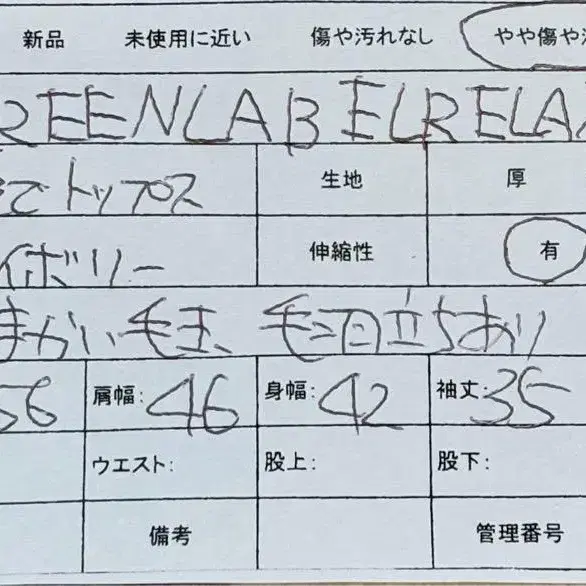 新品 未使用に近い 傷や汚れなし やや傷や
REENLABELRELA
トップス 生地 厚
イボリー 伸縮性 有
まかい毛玉、毛羽立ちあり
56 肩幅:46 身幅:42 袖丈:35
ウエスト: 股上: 股下:
備考 管理番号